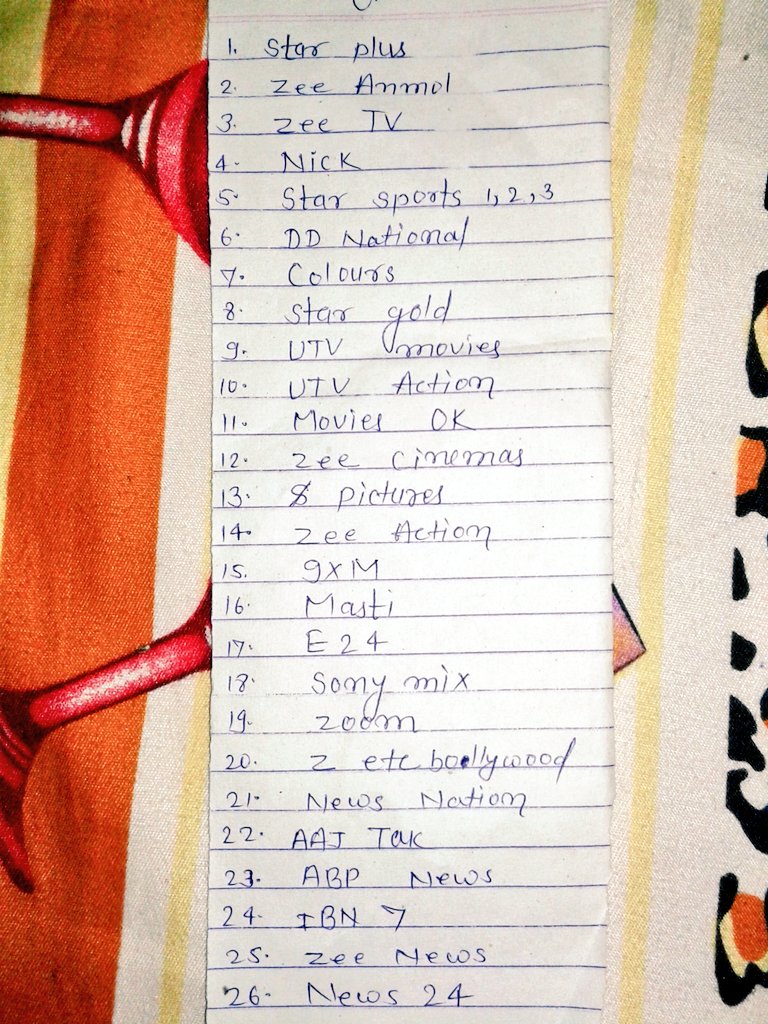 1. Star plus
2. Zee Anmol
3. Zee TV
4. Nick
5. Star sports 1,2,3
6. DD National
7. Colours
8. Star gold
9. UTV movies
10. UTV Action
11. Movies OK
12. Zee cinemas
13. & pictures
14. Zee Action
15. 9XM
16. Masti
17. E 24
18. Sony mix
19. Zoom
20. Z etc bollywood
21. News Nation
22. AAJ Tak
23. ABP News
24. IBN 7
25. Zee News
26. News 24